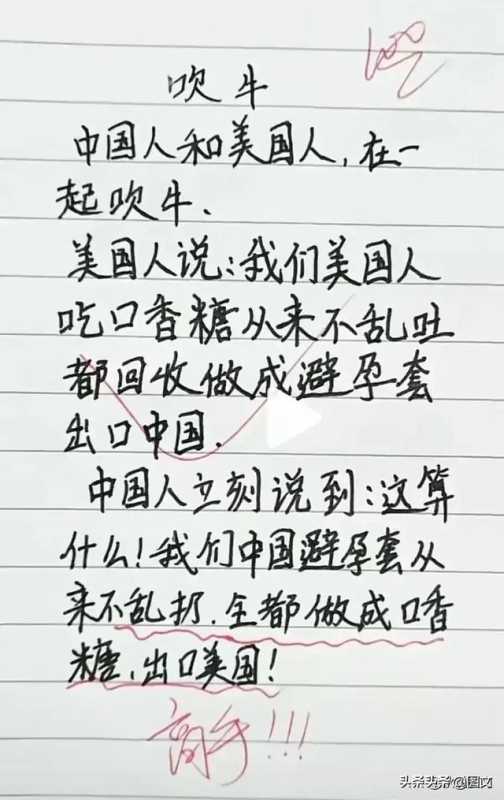 100
吹牛
中国人和美国人,在一
起吹牛.
美国人说:我们美国人
吃口香糖从来不乱吐
都回收做成避孕套
出口中国.
中国人立刻说到:这算
什么!我们中国避孕套从
来不乱扔.全都做成口香
糖,出口美国!
高手!!!
头条头条@图文